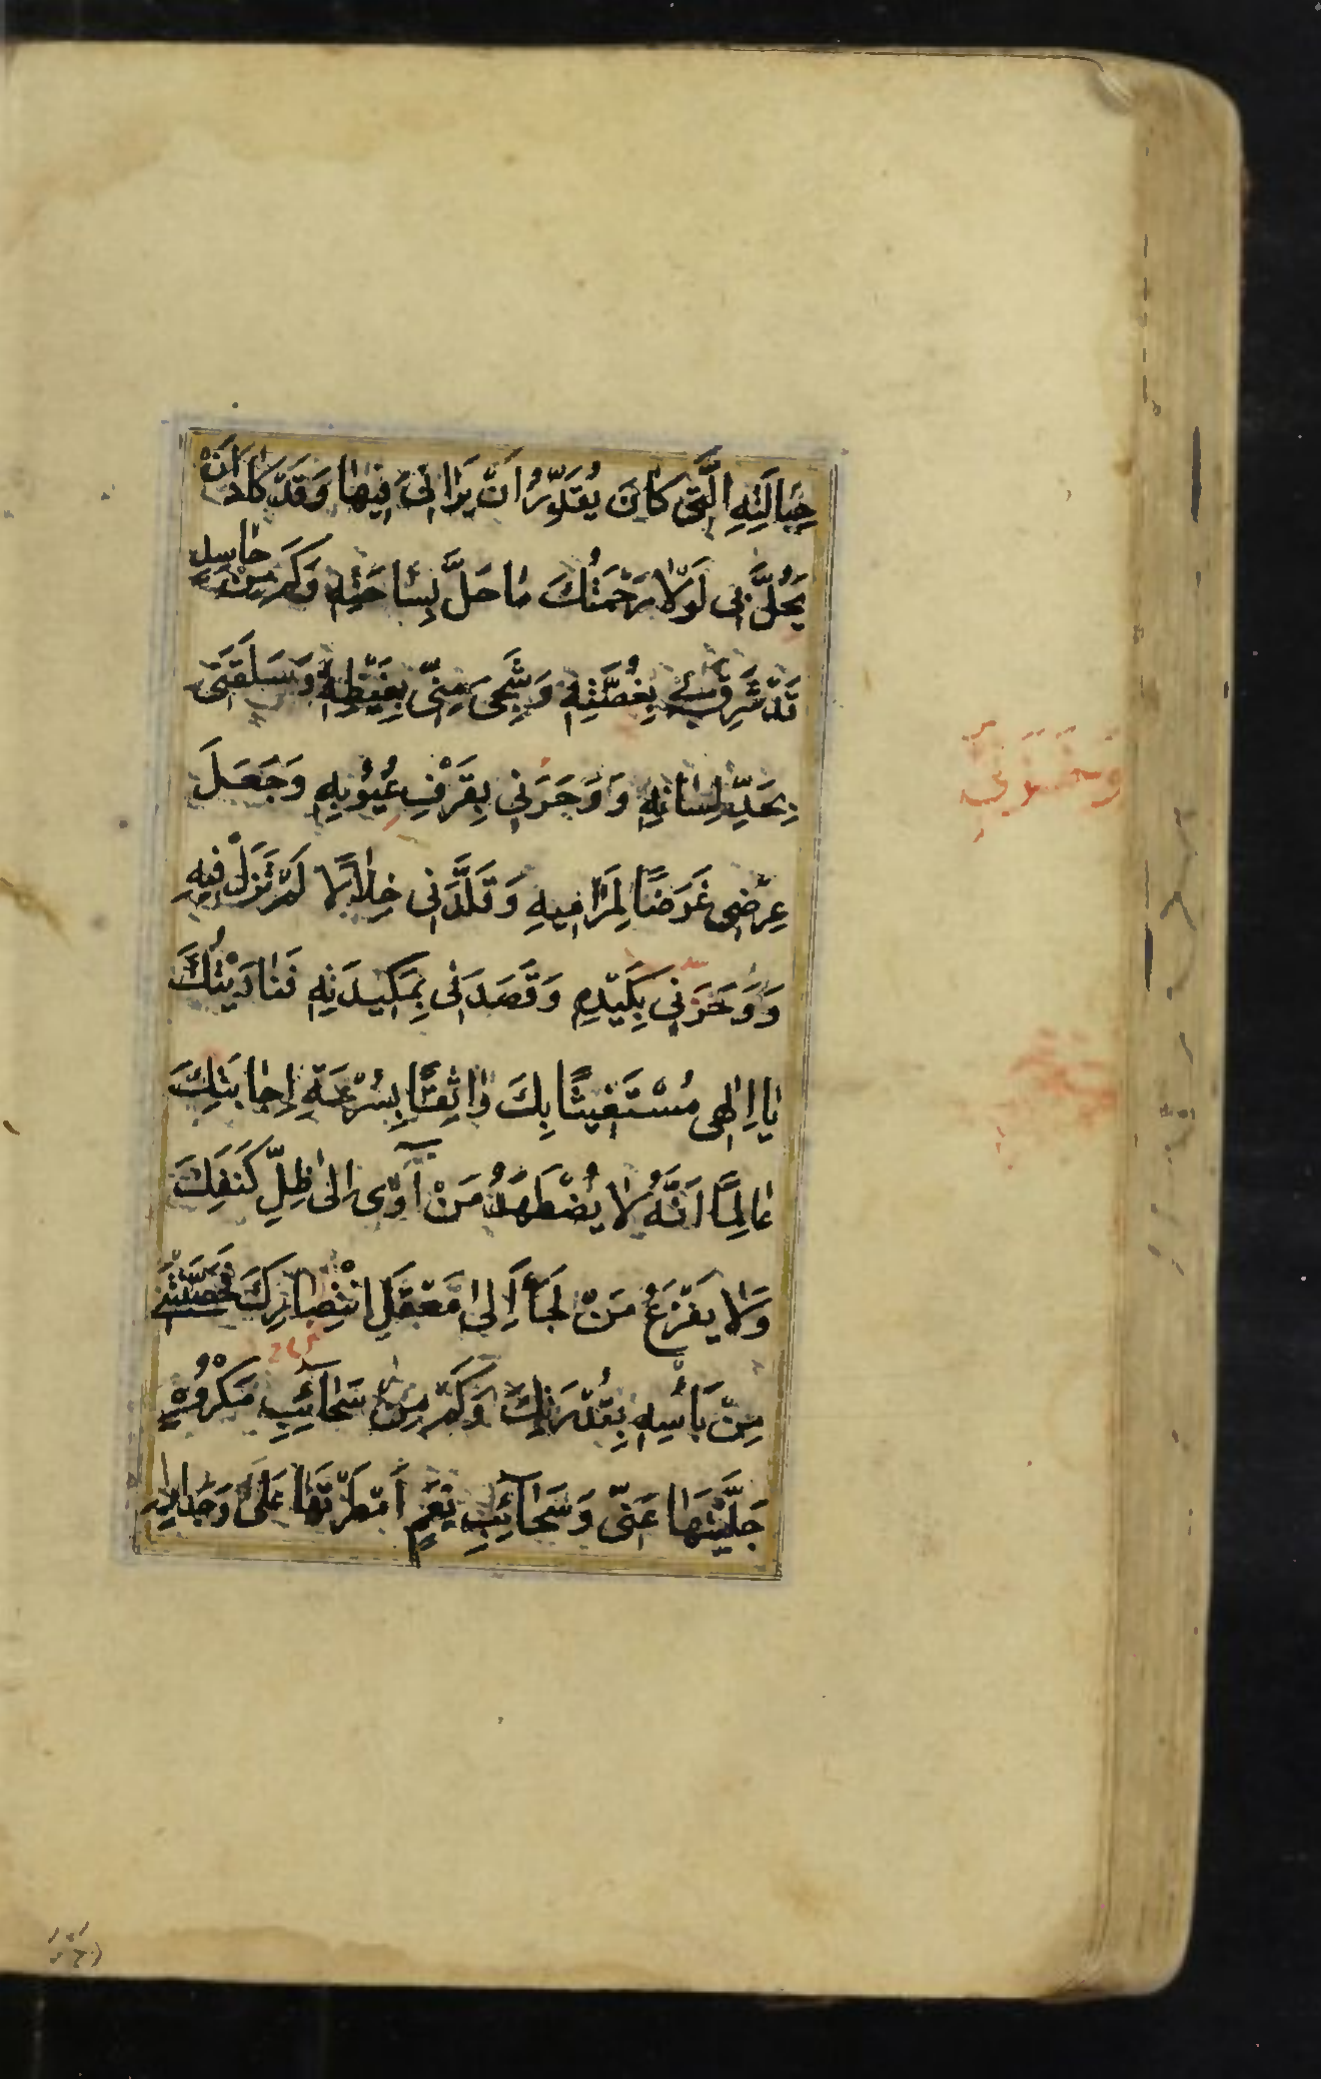 حِبَالَتِهِ الَّتِی كَانَ يُقَدِّرُ اَنْ يَرَانِیَ فِيهَا وَقَدْ كَادَ اَنْ
يَحُلَّ بِی لَوْلَا رَحْمَتُكَ مَا حَلَّ بِسَاحَتِهِ وَكَمْ مِنْ حَاسِدٍ
قَدْ شَرِقَ بِی بِغُصَّتِهِ وَشَجِیَ مِنِّی بِغَيْظِهِ وَسَلَقَنِی
بِحَدِّ لِسَانِهِ وَوَحَرَنِی بِقَرْفِ عُيُوبِهِ وَجَعَلَ
عِرْضِی غَرَضًا لِمَرَامِيهِ وَقَلَّدَنِی خِلَالًا لَمْ تَزَلْ فِيهِ
وَوَحَرَنِی بِكَيْدِهِ وَقَصَدَنِی بِمَكِيدَتِهِ فَنَادَيْتُكَ
يَا اِلٰهِی مُسْتَغِيثًا بِكَ وَاثِقًا بِسُرْعَةِ اِجَابَتِكَ
عَالِمًا اَنَّهُ لَا يُضْطَهَدُ مَنْ آوٰی اِلٰی ظِلِّ كَنَفِكَ
وَلَا يَفْزَعُ مَنْ لَجَأَ اِلٰی مَعْقِلِ انْتِصَارِكَ فَحَصَّنْتَنِی
مِنْ بَأْسِهِ بِقُدْرَتِكَ وَكَمْ مِنْ سَحَائِبِ مَكْرُوهٍ
جَلَّيْتَهَا عَنِّی وَسَحَائِبِ نِعَمٍ اَمْطَرْتَهَا عَلَیَّ وَجَدَاوِلِ